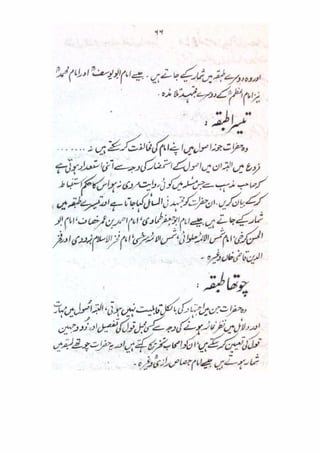 ۶۶
اور وہ دوسرے طبقہ میں شمار کیے جاتے ہیں۔ جیسے امام ابو یوسفؒ اور امام محمدؒ
نیز امام اعظمؒ کے دوسرے مجتہد تلامذہ۔
تیسرا طبقہ :
وہ حضرات جو نہ اصول میں اپنے امام کی مخالفت کر سکتے ہیں نہ ........
فروع میں البتہ ان میں اصول کے استحضار کی وجہ سے اتنی استعداد ہوتی ہے
کہ صاحب مذہب سے جس مسئلہ میں کوئی روایت مروی نہ ہو اس کا حکم استنباط
کر کے بیان کریں۔ ان حضرات کو مجتہد فی المسائل کہا جاتا ہے اور تیسرے طبقہ میں
شمار کیے جاتے ہیں۔ جیسے امام ابو جعفر طحاویؒ، امام احمد بن عمر خصافؒ، امام ابو
الحسن کرخیؒ، امام شمس الائمہ حلوانیؒ، شمس الائمہ سرخسیؒ، امام فخر الاسلام بزدویؒ اور فخر
الدین قاضی خاںؒ وغیرہ۔
چوتھا طبقہ :
وہ حضرات جن میں اجتہاد کی بالکل قابلیت نہیں ہوتی، البتہ اصول میں مہارت
اور دلائل میں نظر غائر ہونے کی وجہ سے کسی مجمل قول کی تفصیل اور ذو وجہین
قول کی تعیین کر سکتے ہیں، ان کو اصحاب تخریج کہتے ہیں اور یہ حضرات چوتھے طبقہ میں
شمار ہوتے ہیں جیسے امام جصاص رازیؒ وغیرہ۔